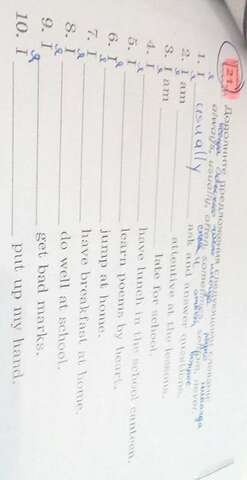 21. Дополните предложения следующими словами:
always, usually, often, sometimes, seldom, never.
1. I usually ask and answer questions.
2. I am ________ attentive at the lessons.
3. I am ________ late for school.
4. I ________ have lunch in the school canteen.
5. I ________ learn poems by heart.
6. I ________ jump at home.
7. I ________ have breakfast at home.
8. I ________ do well at school.
9. I ________ get bad marks.
10. I ________ put up my hand.